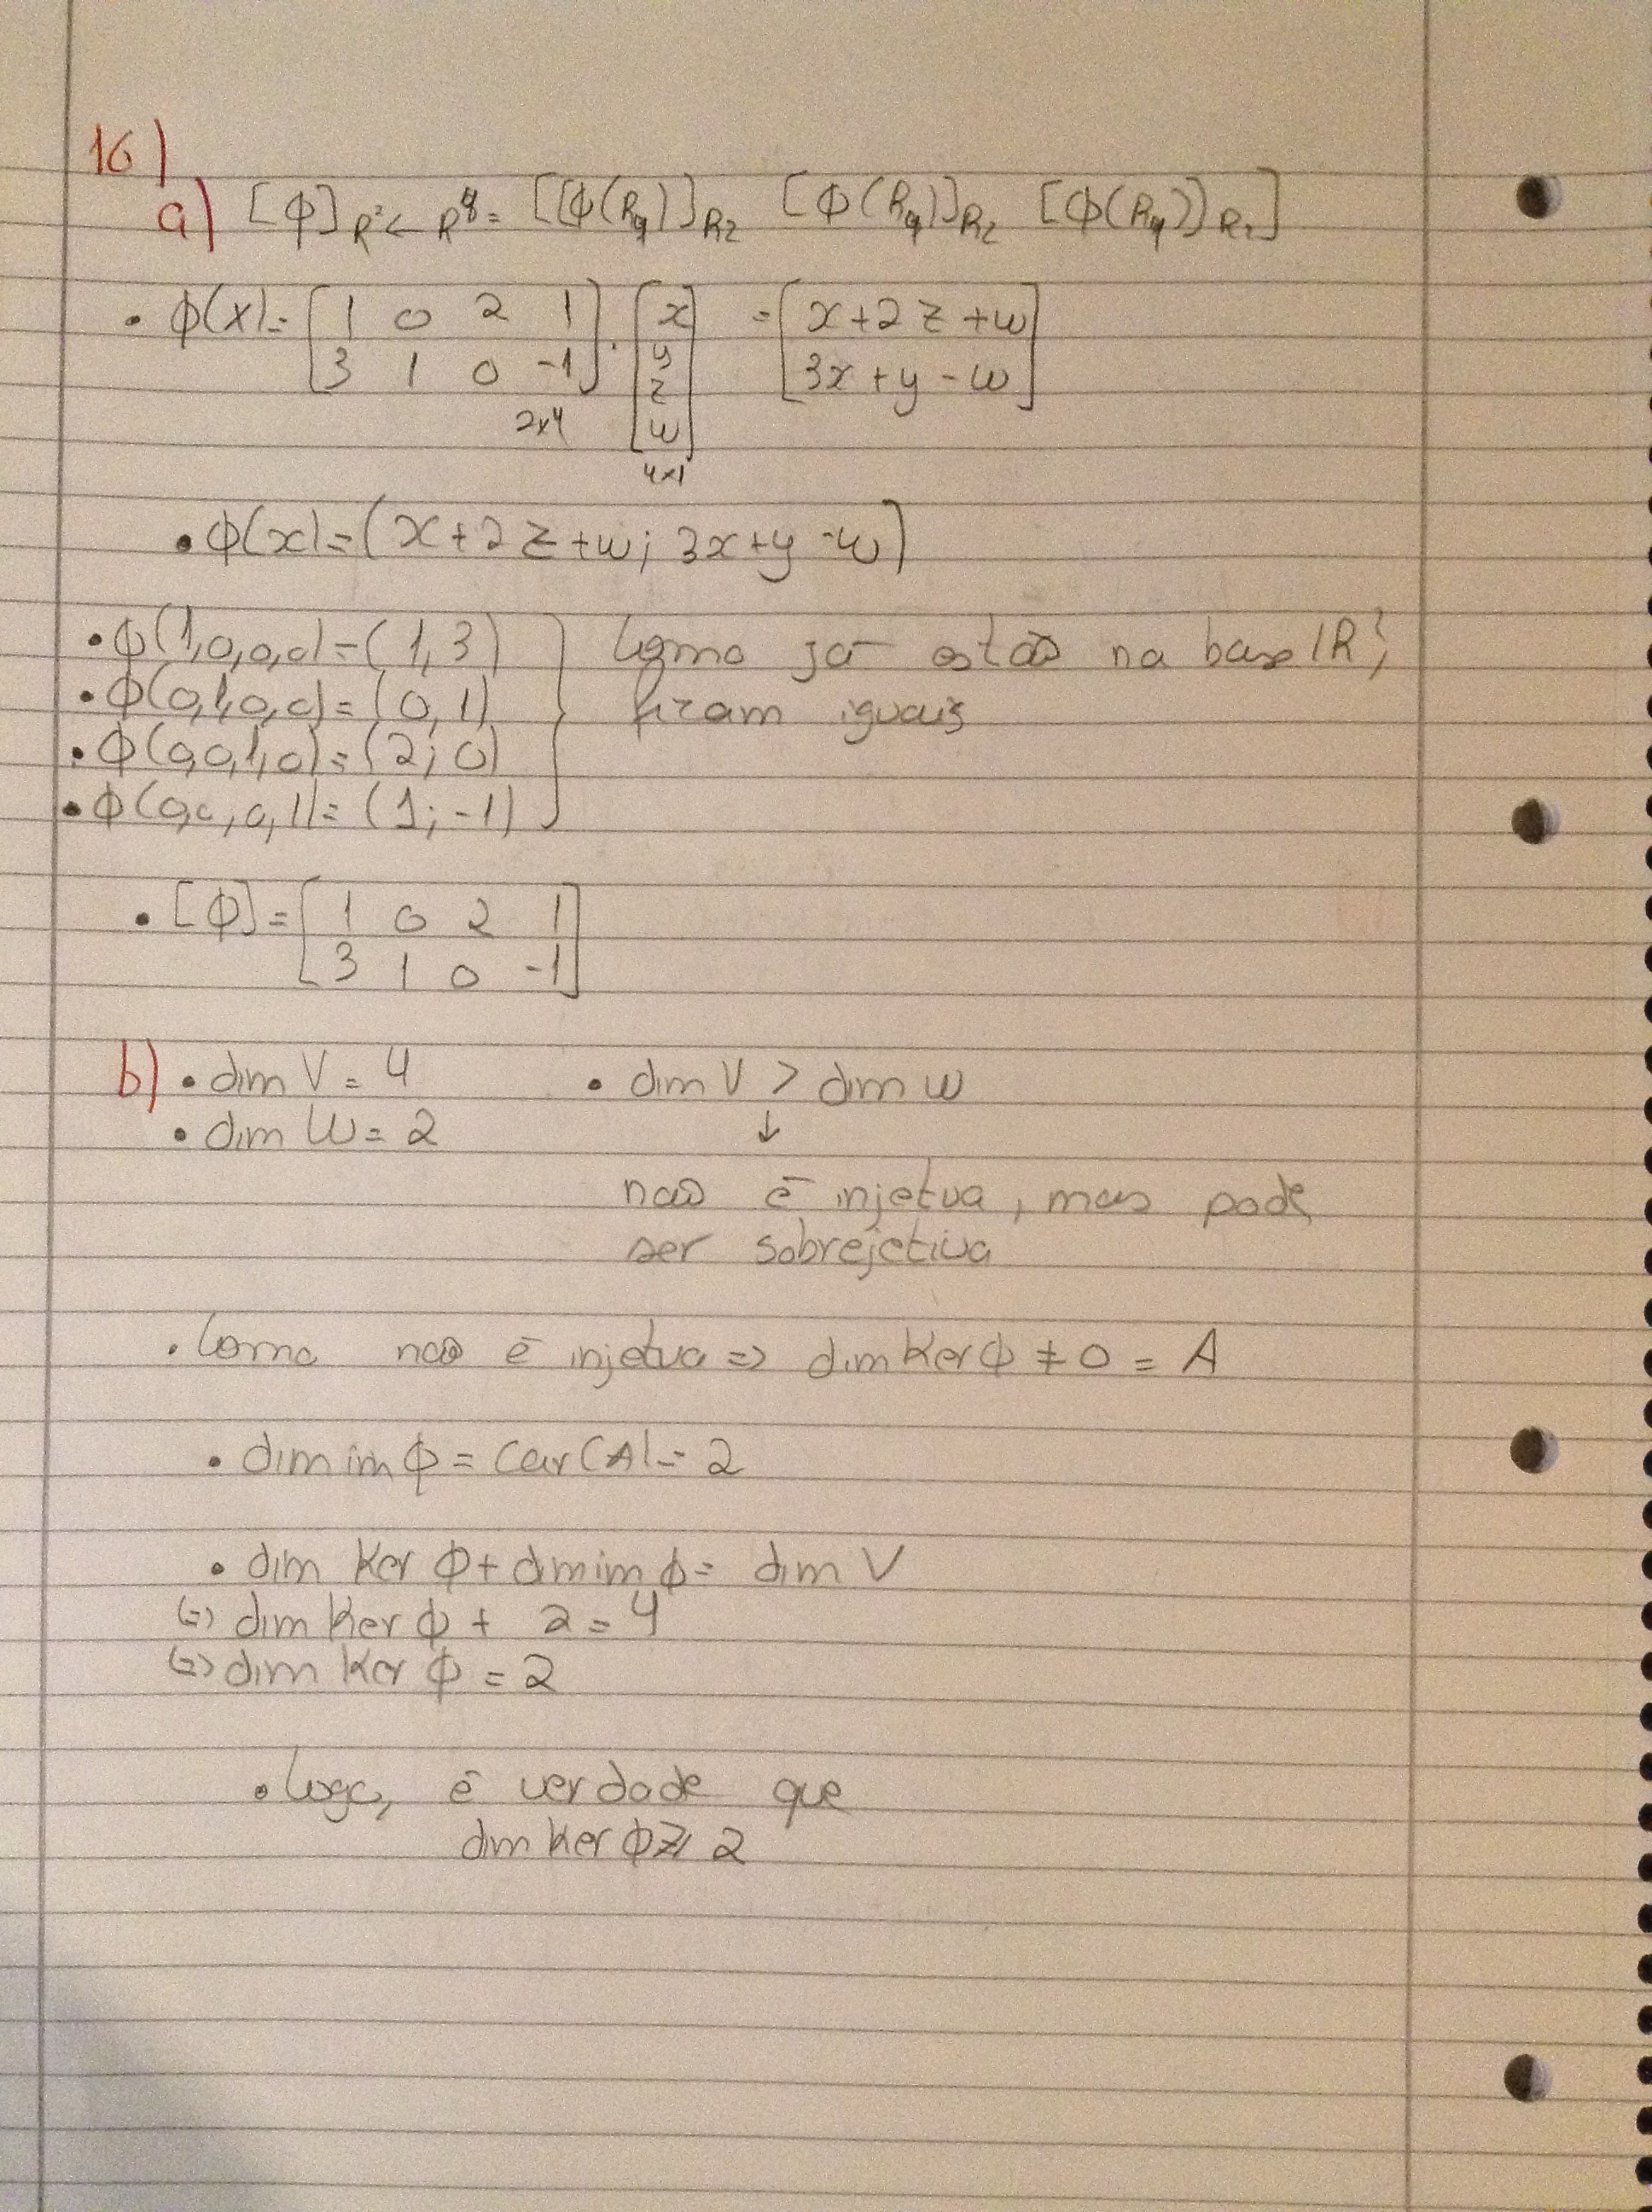 16)
a) [ϕ]R²←R⁴ = [[ϕ(R4)]R2 [ϕ(R4)]R2 [ϕ(R4)]R2]
• ϕ(x) = [1 0 2 1; 3 1 0 -1] 2x4 · [x; y; z; w] 4x1 = [x+2z+w; 3x+y-w]
• ϕ(x) = (x+2z+w; 3x+y-w)
• ϕ(1,0,0,0) = (1,3) } Como já estão na base IR²,
• ϕ(0,1,0,0) = (0,1) ficam iguais
• ϕ(0,0,1,0) = (2; 0)
• ϕ(0,0,0,1) = (1; -1)
• [ϕ] = [1 0 2 1
3 1 0 -1]
b) • dim V = 4 • dim V > dim W
• dim W = 2 ↓
não é injetiva, mas pode
ser sobrejetiva
• Como não é injetiva => dim Ker ϕ ≠ 0 = A
• dim im ϕ = car(A) = 2
• dim Ker ϕ + dim im ϕ = dim V
(=) dim Ker ϕ + 2 = 4
(=) dim Ker ϕ = 2
• Logo, é verdade que
dim Ker ϕ ≥ 2